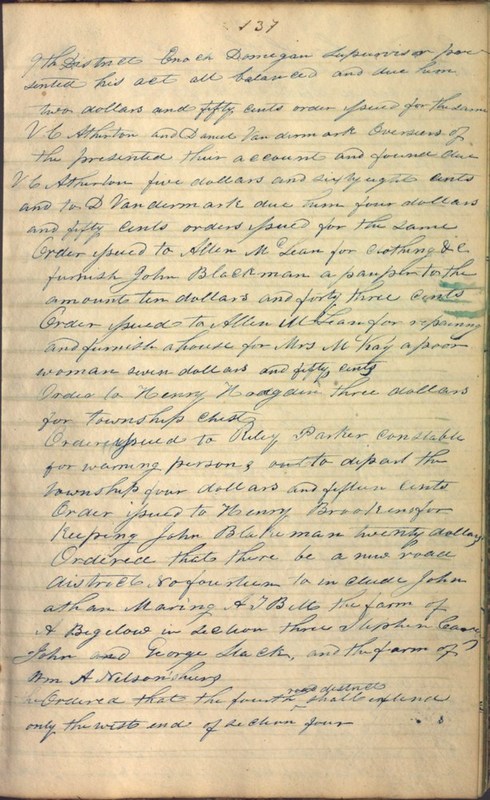 137
9th District Enoch Donegan Supervisor pre-
sented his act all balanced and due him
two dollars and fifty cents order issued for the same
V C Atherton and Daniel Vandermark Overseers of
the presented their account and found due
V C Atherton five dollars and sixty eight cents
and to D Vandermark due him four dollars
and fifty cents orders issued for the same
Order issued to Allen McLean for clothing &c
furnish John Blackman a pauper to the
amount ten dollars and forty three cents
Order issued to Allen McLean for repairing
and furnish a house for Mrs McKay a poor
woman seven dollars and fifty cents
Order to Henry Hodgden three dollars
for township chest
Order issued to Riley Parker constable
for warning persons out to depart the
township four dollars and fifteen cents
Order issued to Henry Brookens for
keeping John Blakeman twenty dollars
Ordered that there be a new road
district No fourteen to include John
athan Maring A T Bill the farm of
A Bigelow in section three Stephen
John and George Slack, and the farm of
Wm A Nelson
Ordered that the fourth road district shall extend
only the west end of section four